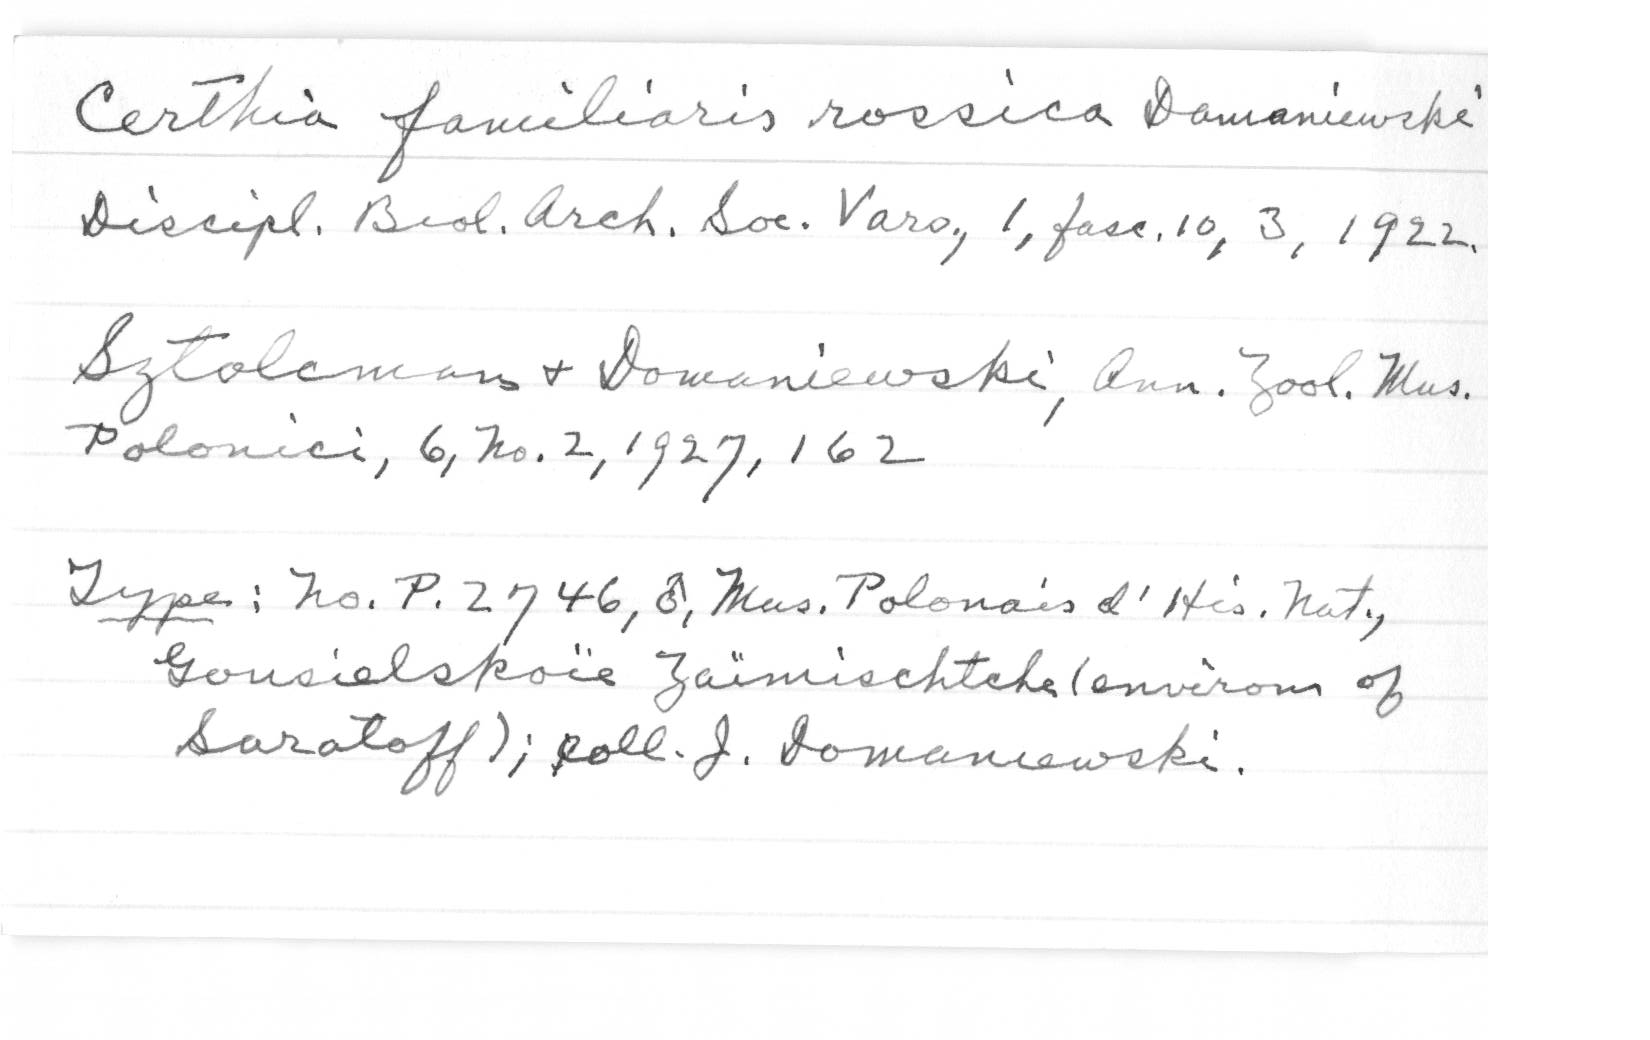 Certhia familiaris rossica Domaniewski
Discipl. Biol. Arch. Soc. Vars., 1, fasc. 10, 3, 1922.
Sztolcman + Domaniewski, Ann. Zool. Mus.
Polonici, 6, No. 2, 1927, 162
Type: No. P. 2746, ♂, Mus. Polonais d' His. Nat.,
Gousielskoïe Zaïmischtche (environs of
Saratoff); coll. J. Domaniewski.